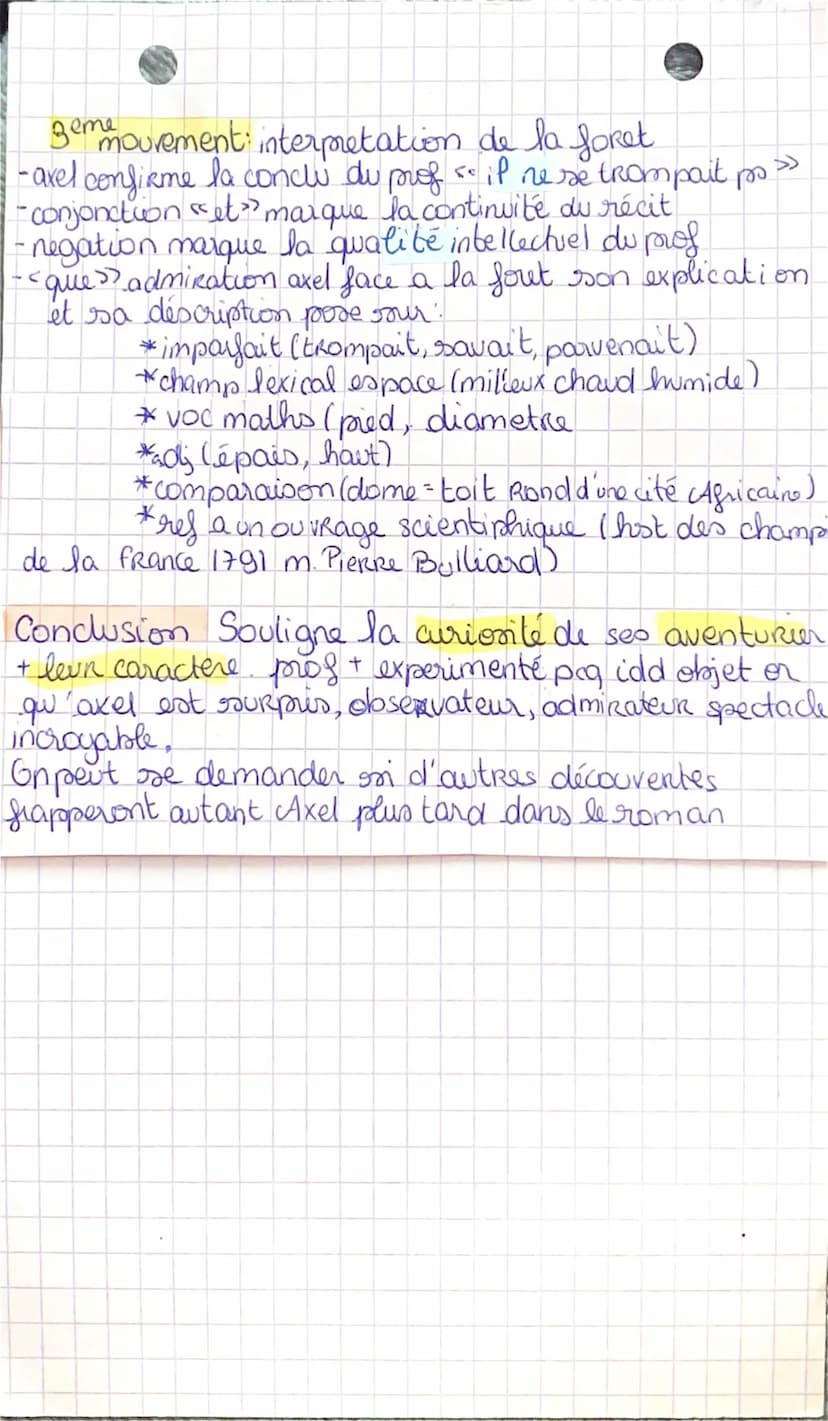 3eme mouvement: interpretation de la foret
- axel confirme la conclu du prof << il ne se trompait pas >>
- conjonction << et >> marque la continuité du récit
- negation marque la qualité intellectuel du prof
- << que >> admiration axel face a la fout son explication
et sa déscription pose sur:
* imparfait (trompait, savait, parvenait)
* champ lexical espace (milieux chaud humide)
* voc maths (pied, diametre
* adj (épais, haut)
* comparaison (dome = toit Rond d'une cité Africaine)
* ref a un ouvrage scientiphique (hist des champi
de la france 1791 m. Pierre Bulliard)
Conclusion Souligne la curiosité de ses aventurier
+ leur caractere. prof + experimenté pcq idd objet en
qu'axel est surpris, observateur, admirateur spectacle
incroyable.
On peut se demander si d'autres découvertes
frapperont autant Axel plus tard dans le roman